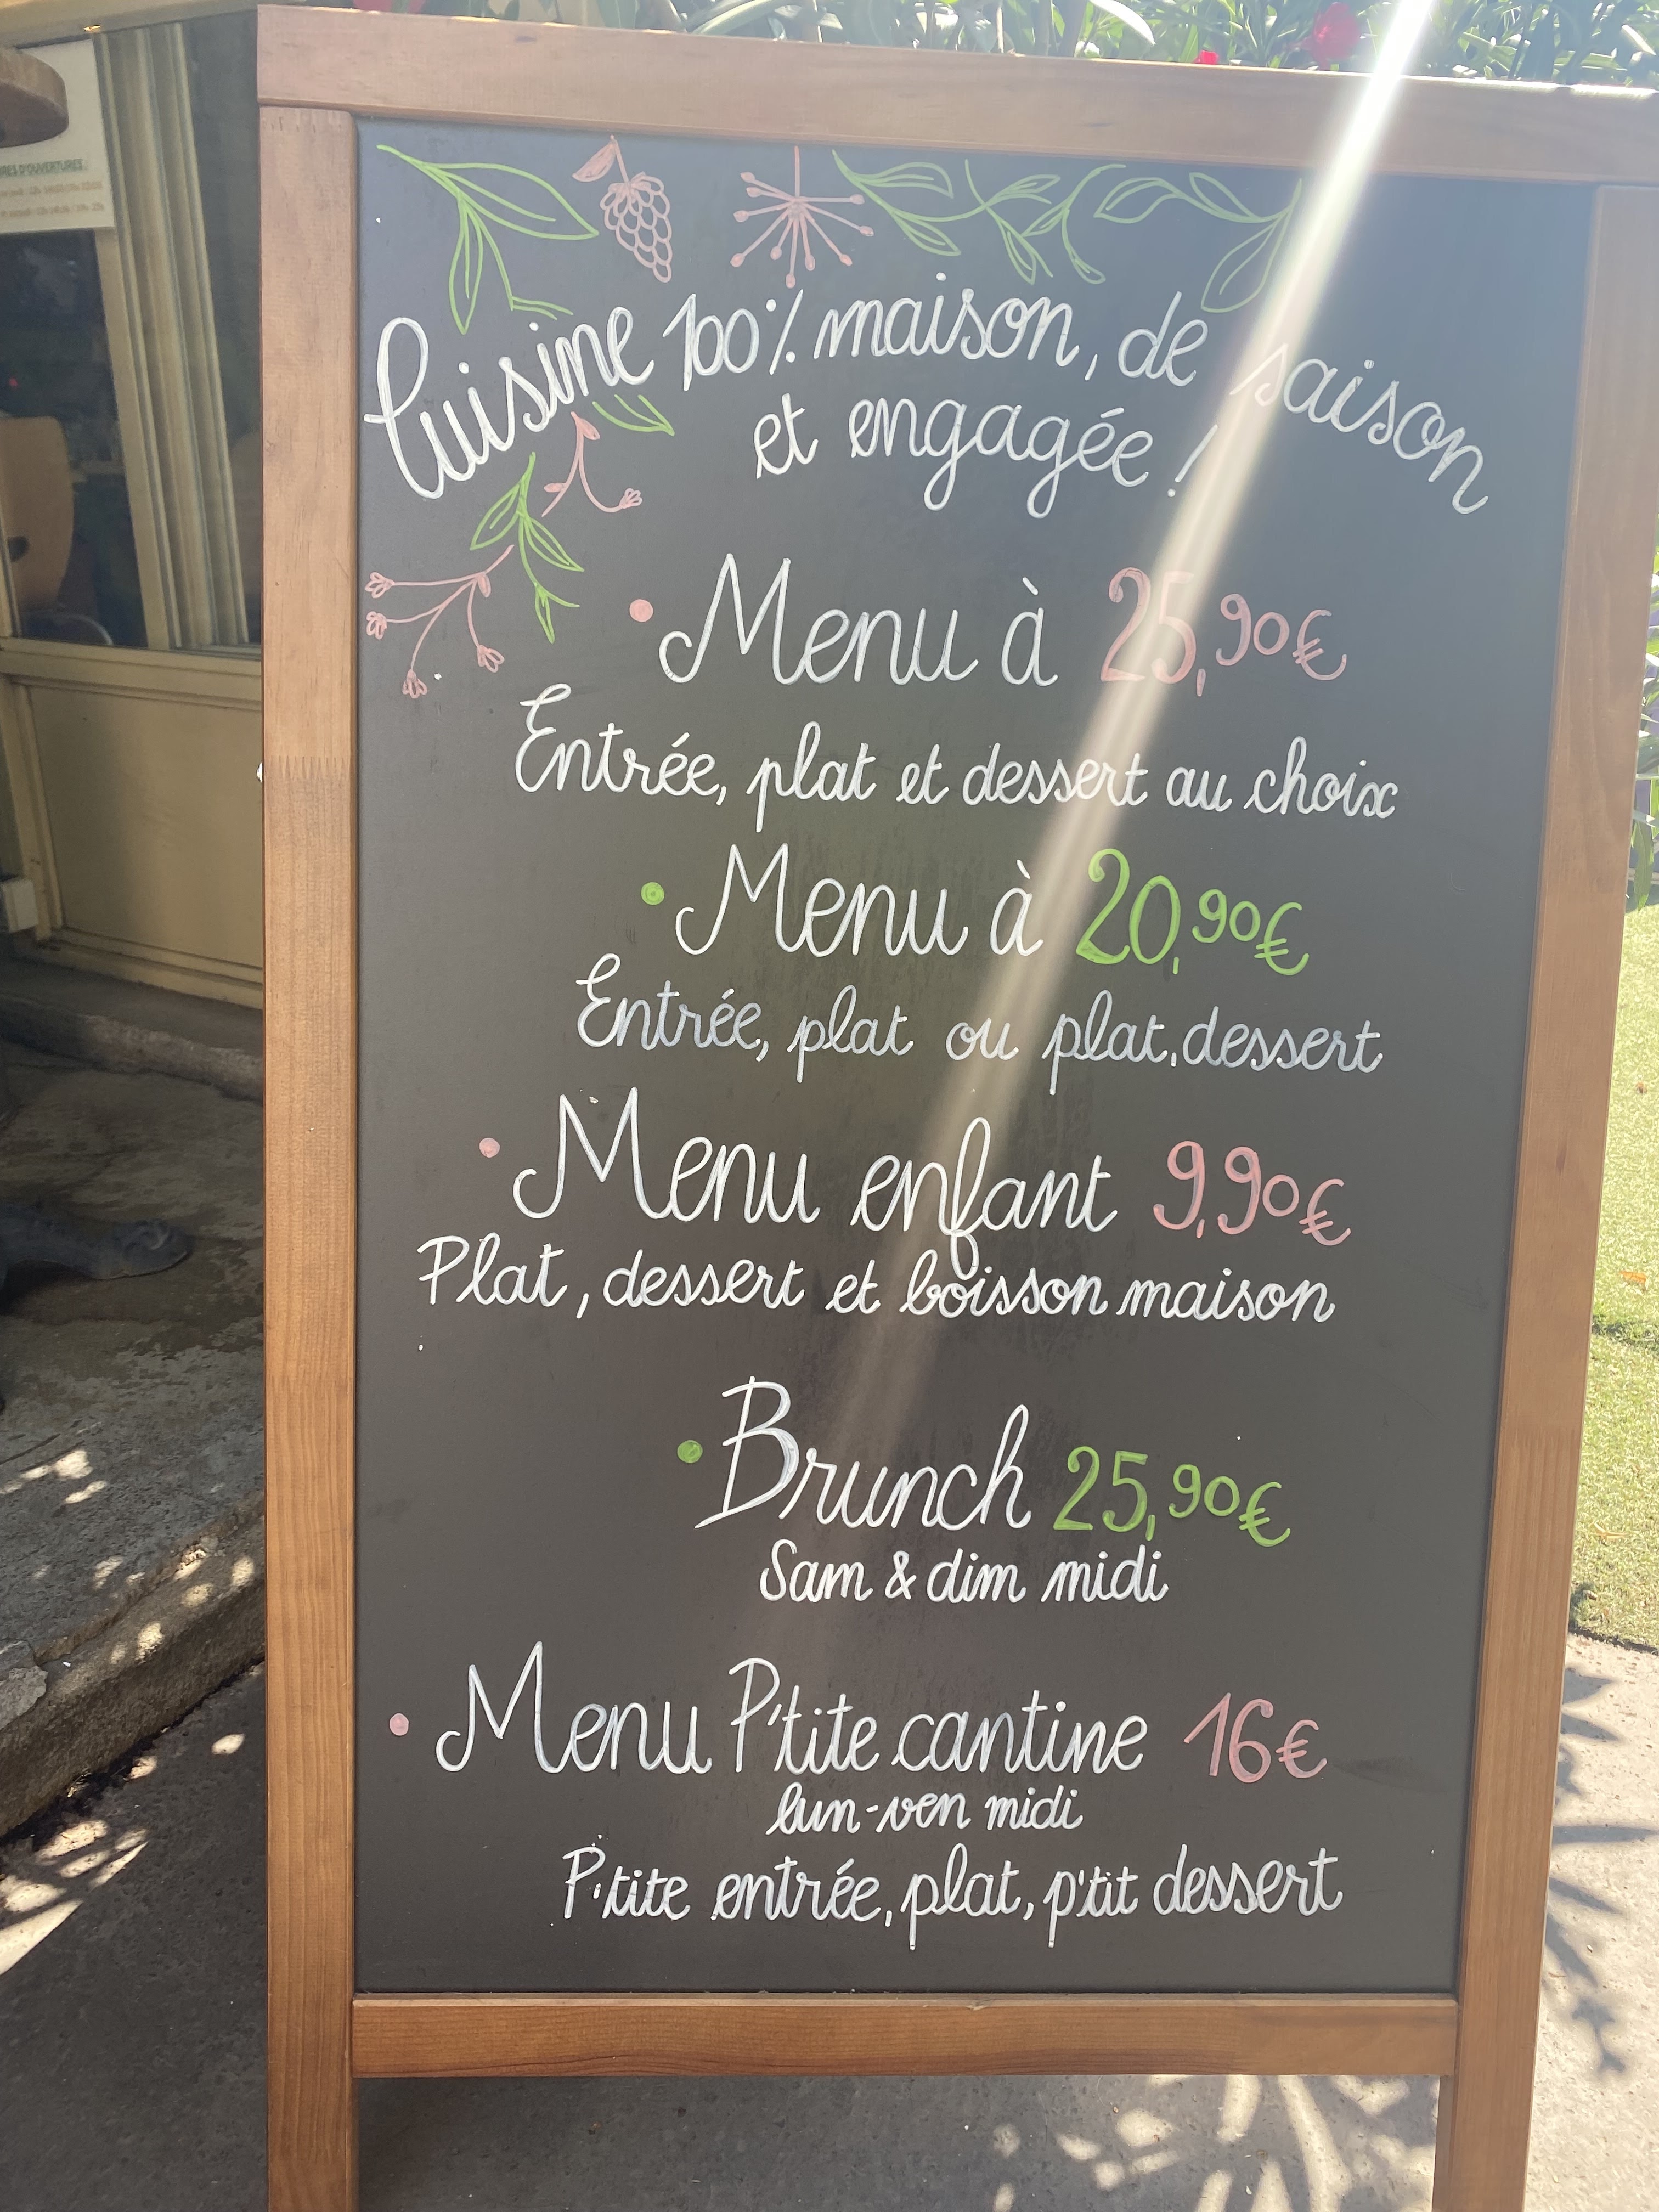 Cuisine 100% maison, de saison
et engagée !
• Menu à 25,90€
Entrée, plat et dessert au choix
• Menu à 20,90€
Entrée, plat ou plat, dessert
• Menu enfant 9,90€
Plat, dessert et boisson maison
• Brunch 25,90€
Sam & dim midi
• Menu P'tite cantine 16€
lun-ven midi
P'tite entrée, plat, p'tit dessert
D'OUVERTURES